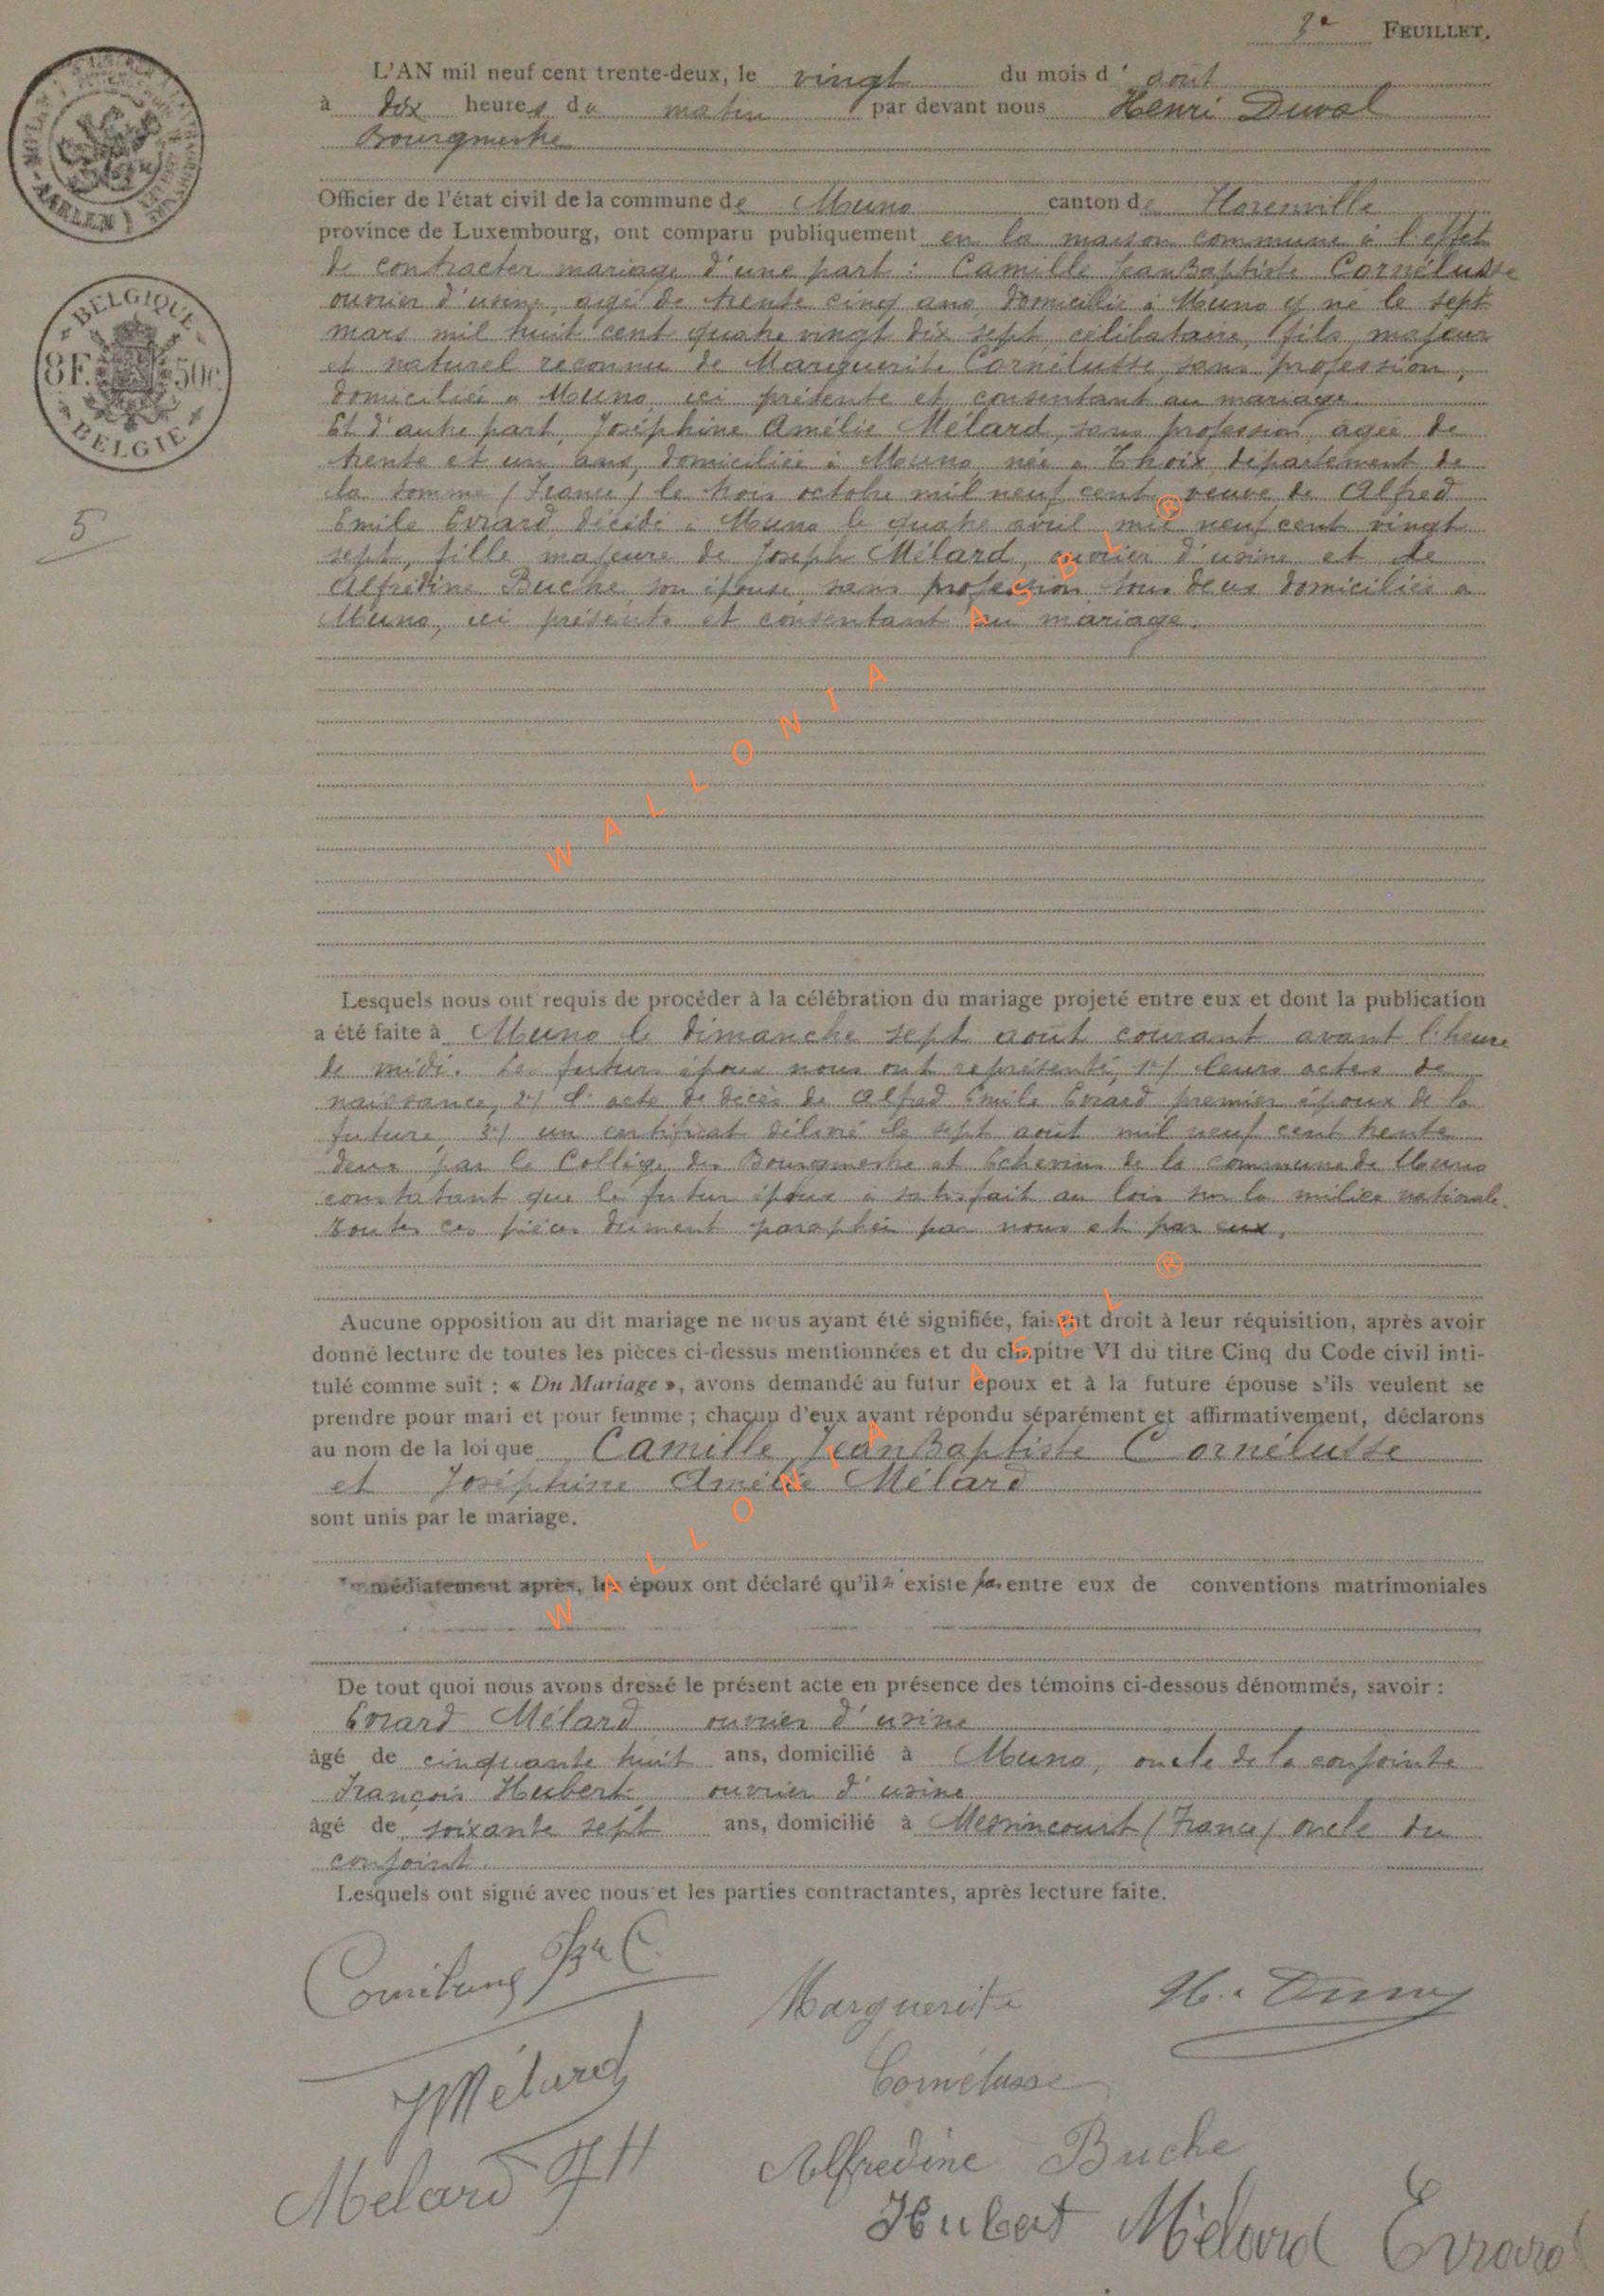 3e FEUILLET.
L'AN mil neuf cent trente-deux, le vingt du mois d' août
à dix heures du matin par devant nous Henri Duval
Bourgmestre
Officier de l'état civil de la commune de Muno canton de Florenville
province de Luxembourg, ont comparu publiquement en la maison commune à l'effet
de contracter mariage d'une part : Camille Jean Baptiste Cornélusse
ouvrier d'usine, agé de trente cinq ans, domicilié à Muno y né le sept
mars mil huit cent quatre vingt dix sept, célibataire, fils majeur
et naturel reconnu de Marguerite Cornélusse, sans profession,
domiciliée à Muno, ici présente et consentant au mariage.
Et d'autre part, Joséphine Amélie Mélard, sans profession, agée de
trente et un ans, domiciliée à Muno, née à Thoix, département de
la Somme (France) le trois octobre mil neuf cent, veuve de Alfred
Emile Evrard, décédé à Muno le quatre avril mil neuf cent vingt
sept, fille majeure de Joseph Mélard, ouvrier d'usine et de
Alfrédine Buche, son épouse, sans profession, tous deux domiciliés à
Muno, ici présents et consentant au mariage.
5
BELGIQUE
8F. 50c
BELGIE
WALLONIA ASBL ®
Lesquels nous ont requis de procéder à la célébration du mariage projeté entre eux et dont la publication
a été faite à Muno le dimanche sept août courant avant l'heure
de midi. Les futurs époux nous ont représenté, 1°/ leurs actes de
naissance, 2°/ l'acte de décès de Alfred Emile Evrard premier époux de la
future, 3°/ un certificat délivré le sept août mil neuf cent trente
deux par le Collège des Bourgmestre et Echevins de la commune de Muno
constatant que le futur époux a satisfait au lois sur la milice nationale.
Toutes ces pièces dûment paraphées par nous et par eux,
Aucune opposition au dit mariage ne nous ayant été signifiée, faisant droit à leur réquisition, après avoir
donné lecture de toutes les pièces ci-dessus mentionnées et du chapitre VI du titre Cinq du Code civil inti-
tulé comme suit : « Du Mariage », avons demandé au futur époux et à la future épouse s'ils veulent se
prendre pour mari et pour femme ; chacun d'eux ayant répondu séparément et affirmativement, déclarons
au nom de la loi que Camille Jean Baptiste Cornélusse
et Joséphine Amélie Mélard
sont unis par le mariage.
WALLONIA ASBL ®
Immédiatement après, les époux ont déclaré qu'il n'existe pas entre eux de conventions matrimoniales
De tout quoi nous avons dressé le présent acte en présence des témoins ci-dessous dénommés, savoir :
Evrard Mélard ouvrier d'usine
âgé de cinquante huit ans, domicilié à Muno, oncle de la conjointe
François Hubert ouvrier d'usine
âgé de soixante sept ans, domicilié à Messincourt (France) oncle du
conjoint.
Lesquels ont signé avec nous et les parties contractantes, après lecture faite.
Marguerite
Cornélusse
H. Duval
J Mélard
Melard J H
Alfredine Buche
Hubert Mélard Evrard